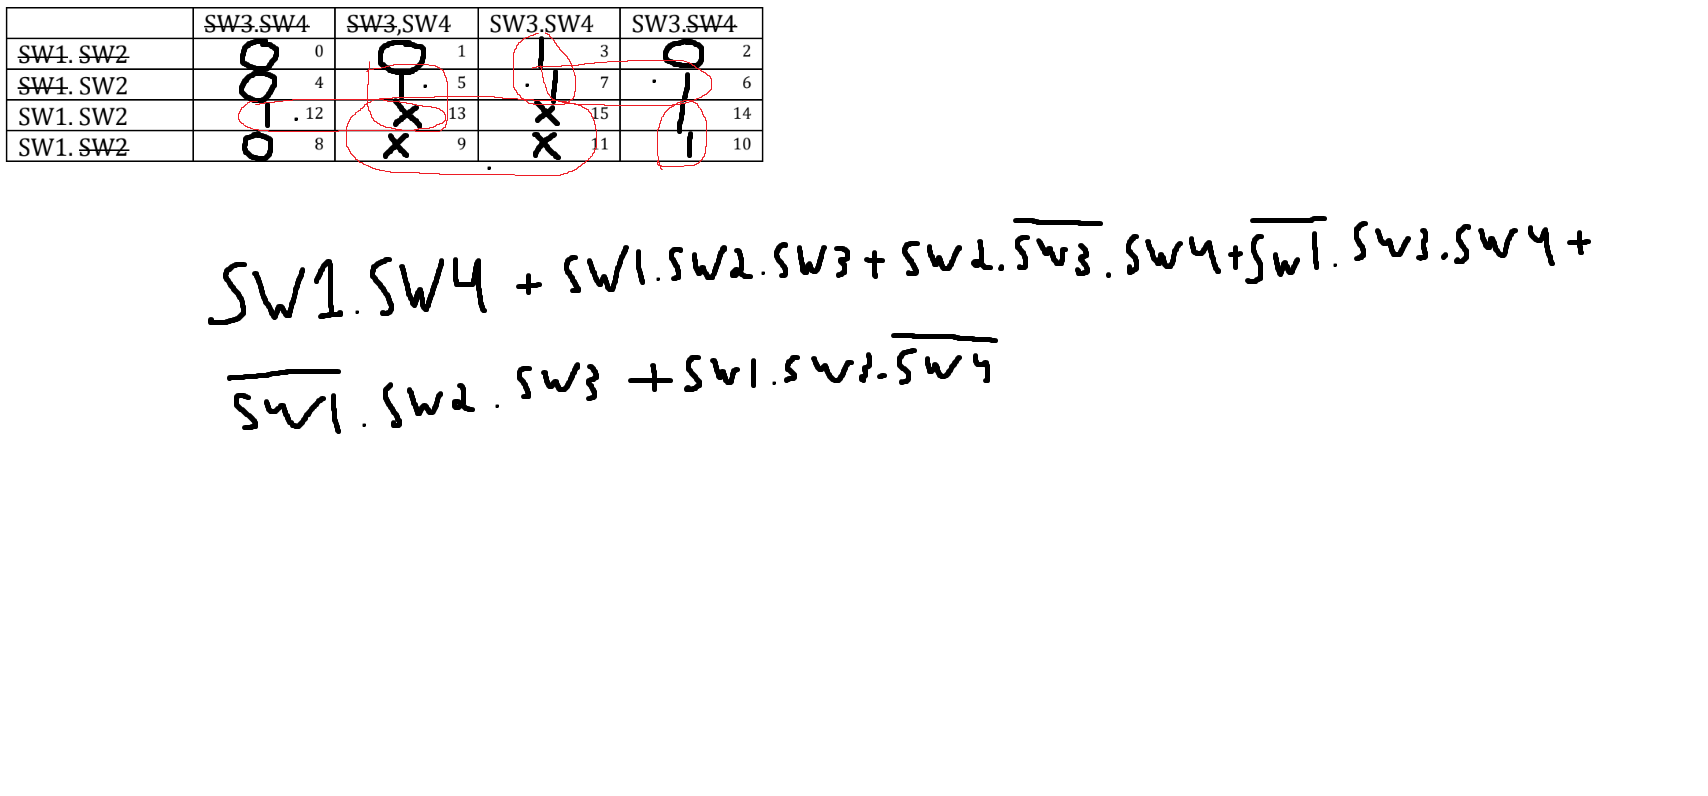 S̶W̶3̶.S̶W̶4̶ S̶W̶3̶,SW4 SW3.SW4 SW3.S̶W̶4̶
S̶W̶1̶. S̶W̶2̶ 0 0 0 1 1 3 0 2
S̶W̶1̶. SW2 0 4 1 5 1 7 1 6
SW1. SW2 1 12 X 13 X 15 1 14
SW1. S̶W̶2̶ 0 8 X 9 X 11 1 10
SW1.SW4 + SW1.SW2.SW3 + SW2.S̅W̅3̅.SW4 + S̅W̅1̅.SW3.SW4 +
S̅W̅1̅.SW2.SW3 + SW1.SW3.S̅W̅4̅